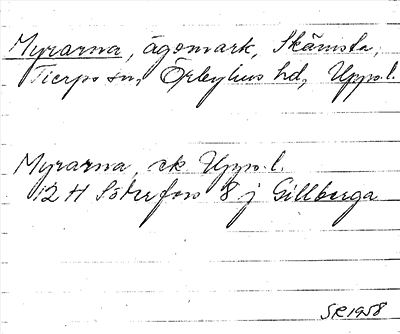 Myrarna, ägomark, Skämsta,
Tierps sn, Örbyhus hd, Uppl.
Myrarna, ek Uppl.
12 H Söderfors 8 j Gillberga
SR 1958